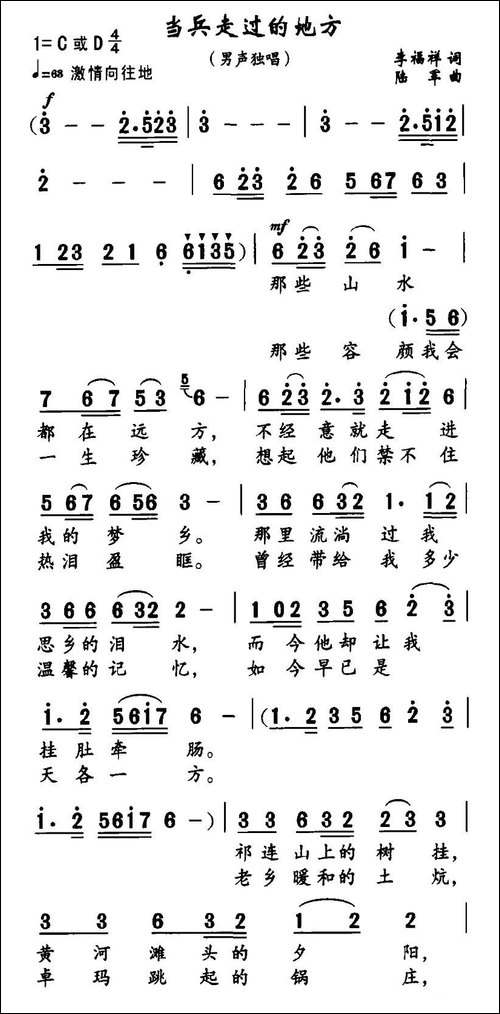 当兵走过的地方
1=C 或 D 4/4
(男声独唱)
李福祥 词
♩=68 激情向往地
陆 军 曲
f
(3 - - 2.523 | 3 - - - | 3 - - 2.512 |
2 - - - | 6 23 26 5 67 63 |
mf
1 23 21 6 6135) | 6 23 26 1 - |
那些 山 水
(1.56)
那些 容 颜我会
7 67 53 5 6 - | 6 23 2.3 2 12 6 |
都在 远 方, 不经 意就走 进
一生 珍 藏, 想起 他们禁不 住
5 67 6 56 3 - | 36 6 32 1. 12 |
我的 梦 乡。 那里流淌 过我
热泪 盈 眶。 曾经带给 我多少
3 66 6 32 2 - | 1 02 35 6 2 3 |
思乡的泪 水, 而今他却让我
温馨的记 忆, 如今早已是
1.2 5617 6 - | (1.2 35 6 2 3 |
挂肚牵 肠。
天各一 方。
1.2 5617 6 -) | 33 6 32 23 3 |
祁连山上的 树 挂,
老乡暖和的 土 炕,
3 3 6 32 12 2 |
黄河滩头的夕 阳,
卓玛跳起的锅 庄,